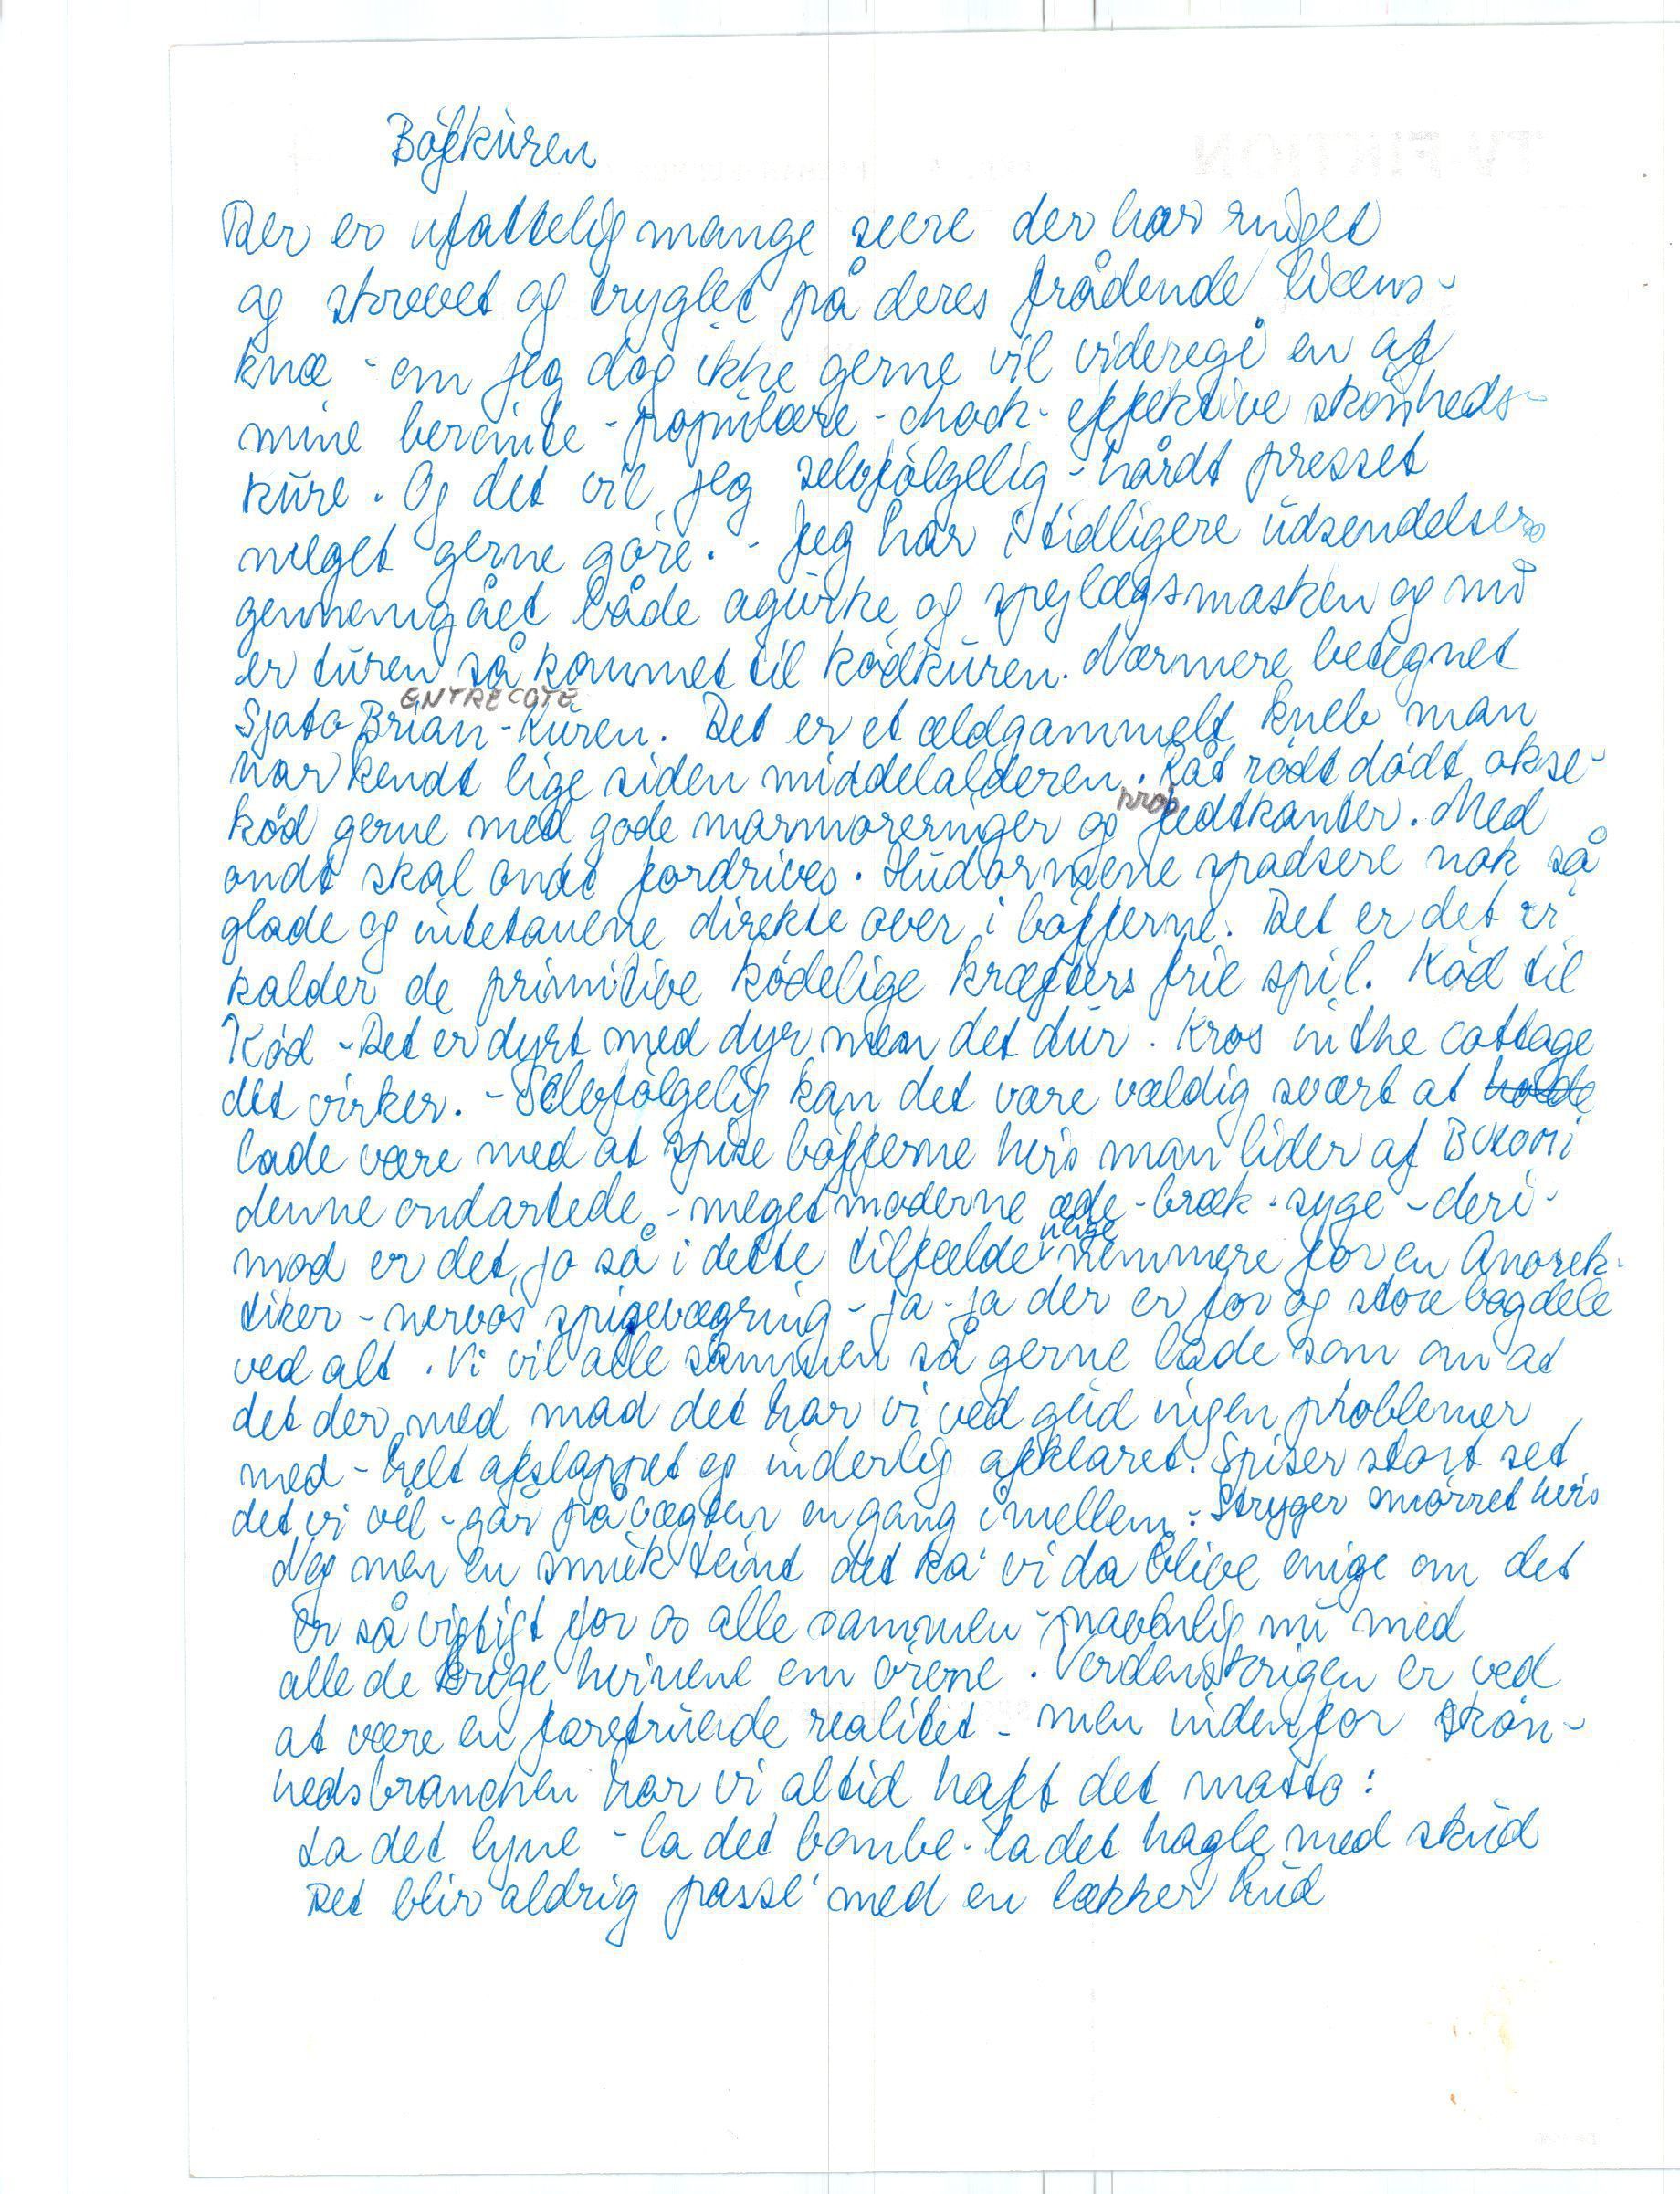 Böfkuren
Der er ufattelig mange seere der har ringet
og skrevet og tryglet på deres frådende licens-
knæ - om jeg dog ikke gerne vil videregi' en af
mine berømte - populære - chock - effektive skønheds-
kure. Og det vil jeg selvfølgelig - hårdt presset
meget gerne gøre. - Jeg har i tidligere udsendelser
gennemgået både agurke og spejlægsmasken og nu
er turen så kommet til kødkuren. Nærmere betegnet
ENTRECOTE
Sjato Brian-Kuren. Det er et ældgammelt kneb man
har kendt lige siden middelalderen. Råt rødt dødt okse-
kød gerne med gode marmoreringer og fedtkanter. Med
ondt skal ondt fordrives. Hudormene spadsere nok så
glade og intetanene direkte over i bøfferne. Det er det vi
kalder de primitive kødelige kræfters frie spil. Kød til
Kød - Det er dyrt med dyr men det dur. Kros in the cottage
det virker. - Selvfølgelig kan det være vældig svært at holde
lade være med at spise bøfferne hvis man lider af
denne ondartede - meget moderne æde-bræk-syge - deri-
mod er det jo så i dette tilfælde meget nemmere for en Anorek-
tiker - nervøs spisevægring - ja - ja der er for og store bagdele
ved alt. Vi vil alle sammen så gerne lade som om at
det der med mad det har vi ved gud ingen problemer
med - helt afslappet og inderlig afklaret. Spiser stort set
det vi vil - går på vægten en gang imellem. Stryger smørret hvis
Nej men en smuk teint det ka' vi da blive enige om det
er så vigtigt for os alle sammen - navnlig nu med
alle de krige hvinene om ørene. Verdenskrigen er ved
at være en foretruende realitet - men indenfor skøn-
hedsbranchen har vi altid haft det motto:
La det lyne - la det bombe - la det hagle med skud
Det blir aldrig passé med en lækker hud